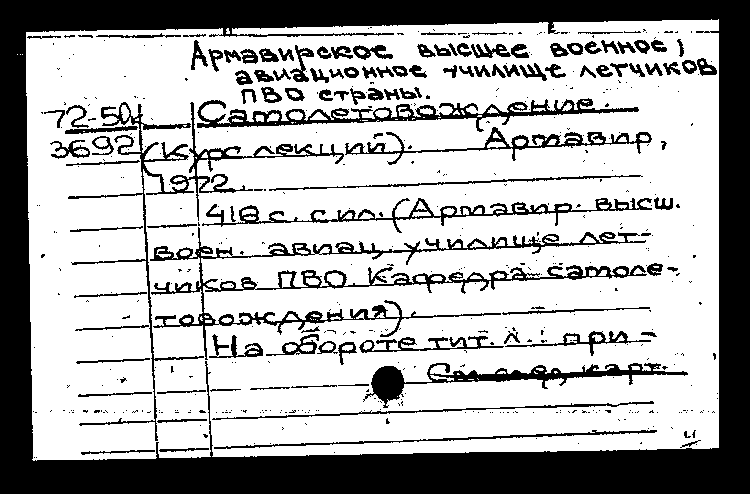 Армавирское высшее военное
авиационное училище летчиков
ПВО страны.
72-50л Самолетовождение.
3692 (Курс лекций). Армавир,
1972.
418 с. с ил. (Армавир. высш.
воен. авиац. училище лет-
чиков ПВО. Кафедра самоле-
товождения).
На обороте тит. л.: при-
См. след. карт.